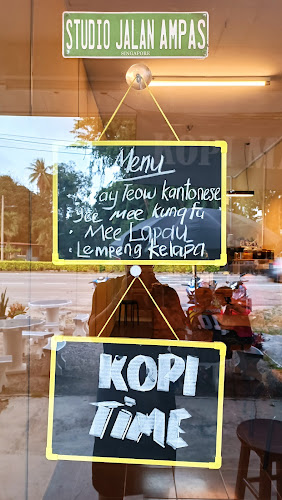 STUDIO JALAN AMPAS
SINGAPORE
Menu
ay Teow kantonese
· yee Mee kungfu
· Mee Lapau
· Lempeng Kelapa
KOPI
TIME